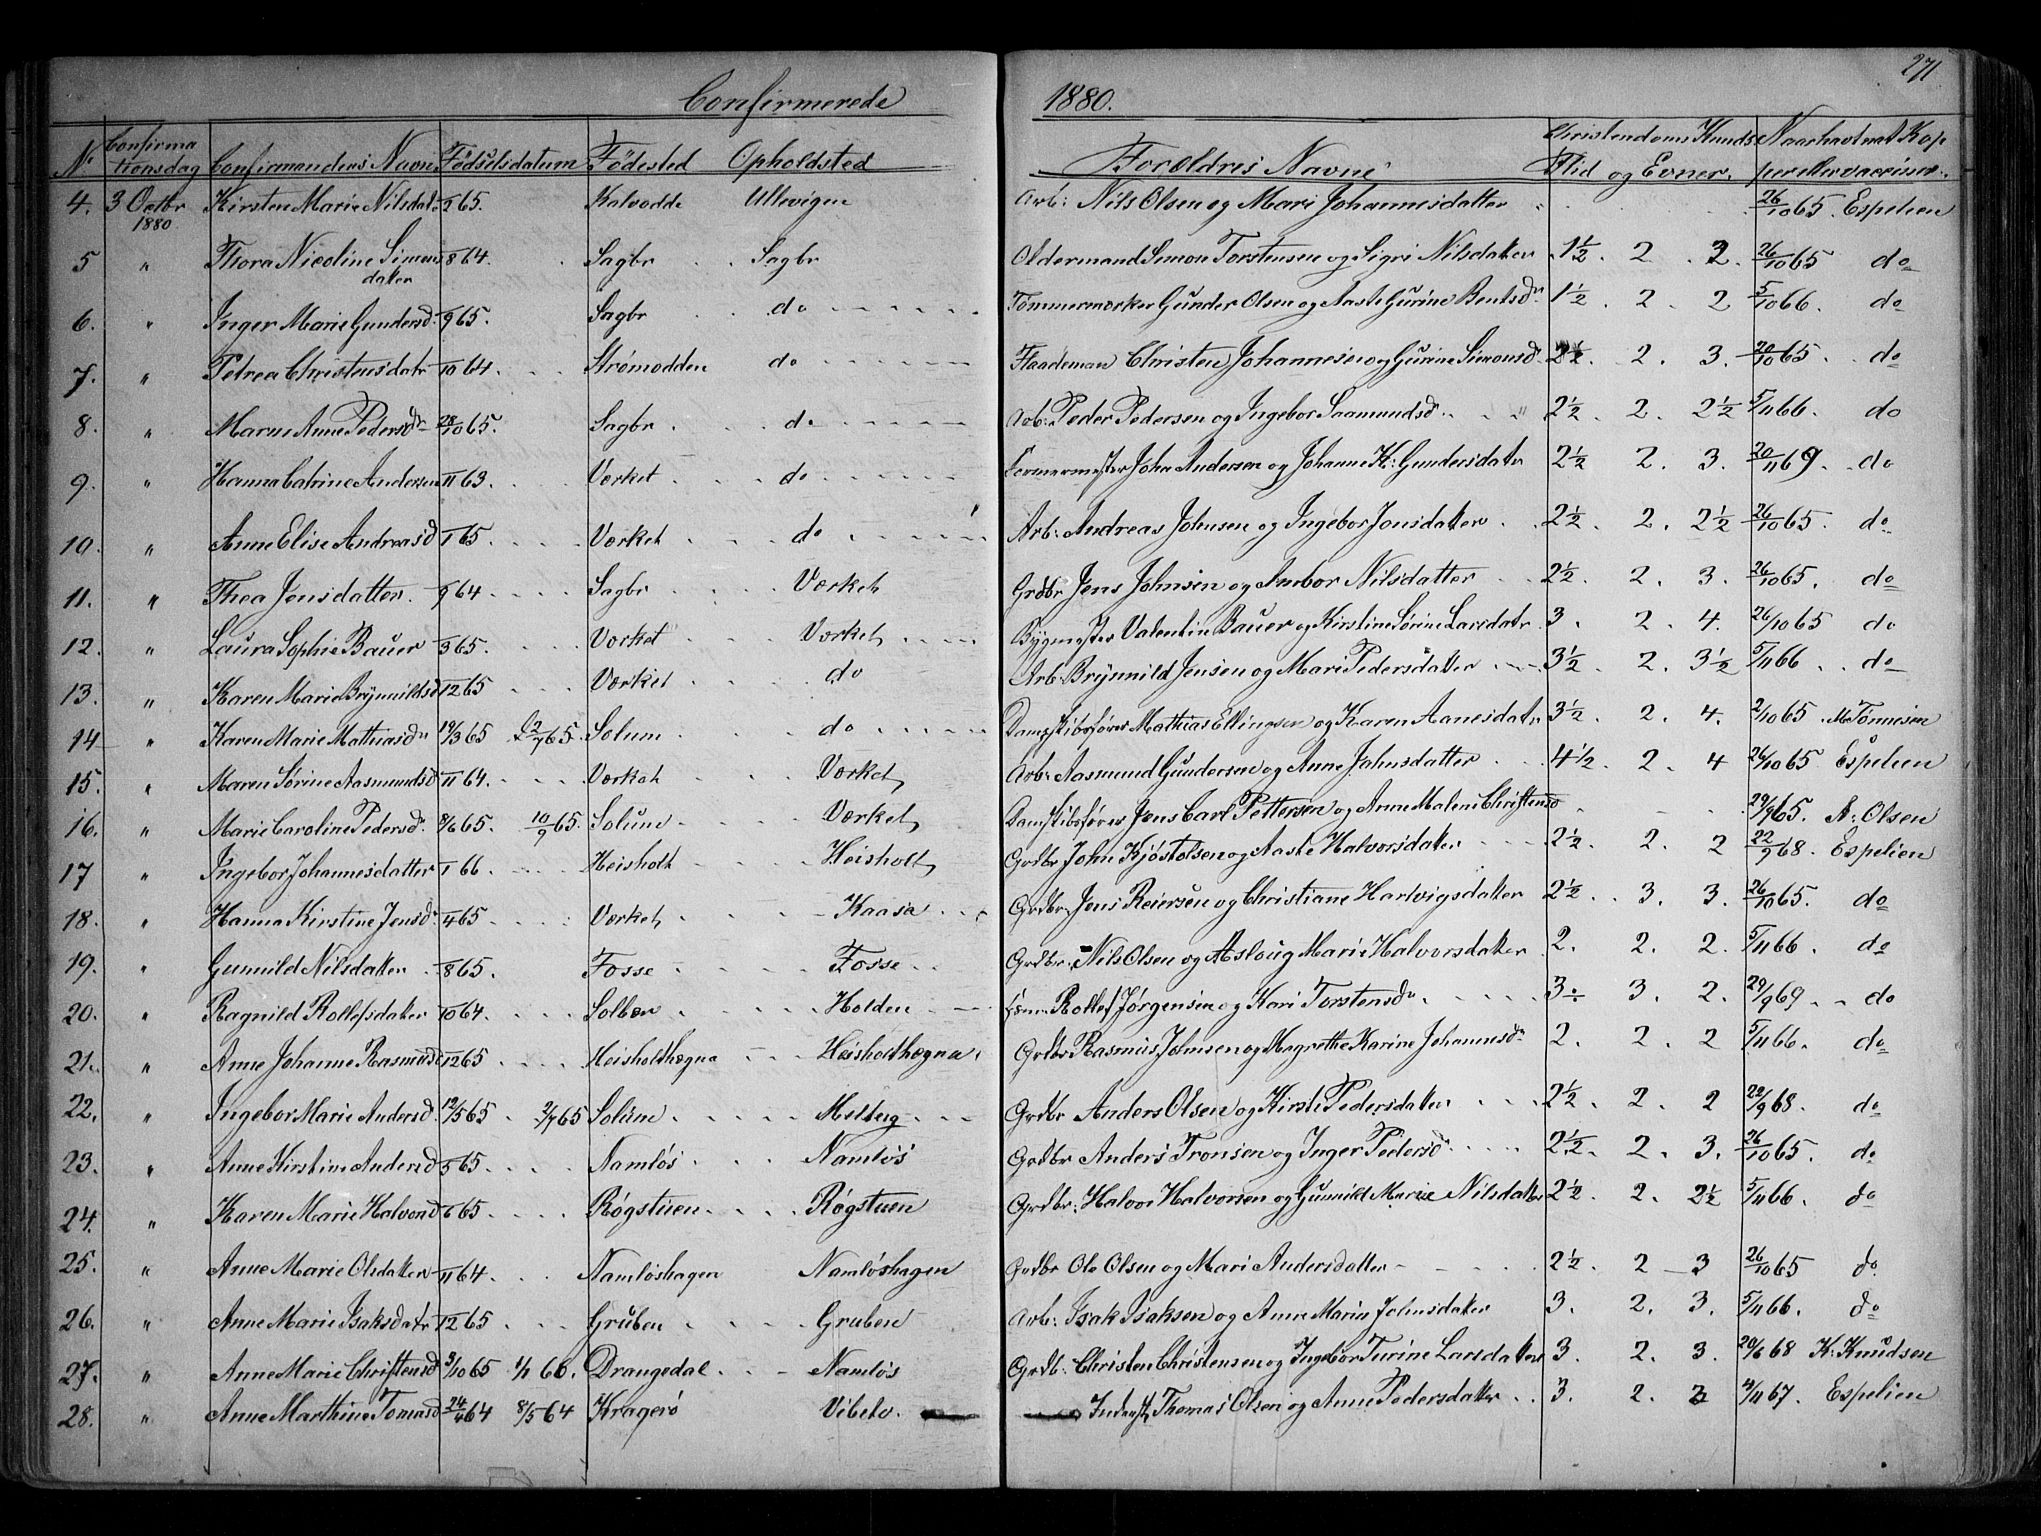 271
Confirmerede 1880.
Nr Confirmationsdag Confirmandens Navn Fødselsdatum Födested Opholdsted Forældres Navne Christendoms Kunds. Flid og Evner. Naar havt nat. Kopper eller vaccineret
4. 3 Octbr 1880 Kirsten Marie Nilsdatr 65. Kalvodde Ullevigen Arb: Nils Olsen og Mari Johannesdatter 26/10 65. Espelien
5 " Thora Nicoline Simonsdatter 8 64. Sagbr Sagbr Oldermand Simon Torstensen og Sigri Nilsdatter 1½. 2. 2. 26/10 65 do
6. " Inger Marie Gundersd. 9 65. Sagbr do Tömmermærker Gunder Olsen og Aaste Gurine Bentsdr 1½. 2. 2 5/10 66. do
7. " Petrea Christensdatr 10 64. Strømodden do Flaademan Christen Johannesen og Gurine Simonsd. 2½. 2. 3. 20/10 65. do
8. " Maren Anne Pedersdr 28/10 65. Sagbr. do Arb: Peder Pedersen og Ingebor Saamundsdr 2½. 2. 2½ 5/11 66. do
9. " Hanna Catrine Andersen 11 63. Værket do Formermester John Andersen og Johanne K: Gundersdatr 2½ 2. 3. 20/11 69. do
10. " Anne Elise Andreasd 1 65. Værket do Arb: Andreas Johnsen og Ingebor Jonsdatter 2½. 2. 2½ 26/10 65. do
11. " Thea Jensdatter. 9 64. Sagbr Værket Grdbr Jens Johnsen og Anbor Nilsdatter 2½. 2. 3. 26/10 65. do
12. " Laura Sophie Bauer 3 65. Værket Værket Bygmester Valentin Bauer og Kirstine Sörine Larsdatr 3. 2. 4. 26/10 65 do
13. " Karen Marie Brynnildsd 12 65 Værket do Arb: Brynnild Jensen og Mari Pedersdatter 3½. 2. 3½ 5/11 66. do
14 " Karen Marie Mathiasdr 19/3 65 2/7 65. Solum do Dampskibsfører Mathias Ellingsen og Karen Aanesdatr 3½. 2. 4. 2/10 65. M. Tönnesen
15. " Maren Sørine Aasmundsd 11 64. Værket Værket Arb: Aasmund Gundersen og Anne Johnsdatter 4½. 2. 4 26/10 65 Espelien
16. " Marie Caroline Pedersdr. 8/6 65. 10/9 65. Solum Værket Damskibsfører Jens Carl Pettersen og Anne Malene Christensd 29/9 65. A: Olsen
17 " Ingebor Johannesdatter 1 66. Heisholt Heisholt Grdbr John Kjøstolsen og Aaste Halvorsdatter 2½. 2. 2 22/9 68. Espelien
18. " Hanna Kirstine Jensdr 4 65. Værket Kaasa Grdbr. Jens Reiersen og Christiane Hartvigsdatter 2½. 3. 3. 26/10 65. do
19. " Gunnild Nilsdatter 8 65. Fosse Fosse Grdbr. Nils Olsen og Aslaug Marie Halvorsdatter 2. 2. 2. 5/11 66. do
20. " Ragnild Rollefsdatter 10 64. Solben Holden Rollef Jørgensen og Kari Torstensdr 3. 3. 2. 29/9 69. do
21. " Anne Johanne Rasmusd 12 65. Heisholthægna Heisholthægna Grdbr Rasmus Johnsen og Magrethe Karine Johannesdr 2. 2. 2 5/11 66. do
22. " Ingebor Marie Andersd 12/5 65 2/7 65 Solum Melberg Grdbr Anders Olsen og Kirsti Pedersdatter 2½. 2. 2 22/9 68. do
23. " Anne Kirstine Andersd 5 65. Namløs Namløs Grdbr Anders Tronsen og Inger Pedersdr 2½. 2. 3. 26/10 65. do
24. " Karen Marie Halvorsd 6 65. Røgstuen Røgstuen Grdbr: Halvor Halvorsen og Gunnild Marie Nilsdatter 2½. 2. 2½ 5/11 66. do
25. " Anne Marie Olsdatter 11 64. Namløshagen Namløshagen Grdbr Ole Olsen og Mari Andersdatter 2½. 2 3 26/10 65 do
26. " Anne Marie Isaksdatr 12 65 Gruben Gruben Arb: Isak Isaksen og Anne Maria Johnsdatter 3. 2. 3. 5/11 66. do
27. " Anne Marie Christensd 3/10 65 1/1 66. Drangedal Namløs Grdb: Christen Christensen og Ingebor Turine Larsdatter 3. 2. 3. 20/6 68 K: Knudsen
28. " Anne Marthine Tomasd 24/4 64 8/5 64 Kragerø Vibeto. Inderst Thomas Olsen og Anne Pedersdatter 3. 2. 3 4/11 67. Espelien